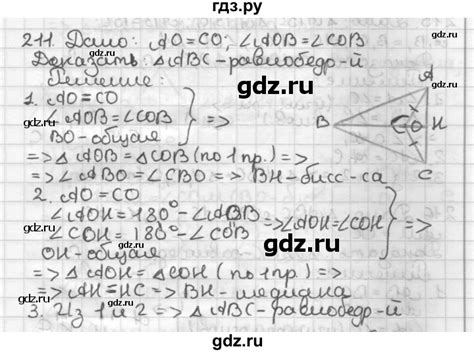 гдз.ру
211. Дано: AO=CO; ∠AOB=∠COB
Доказать: △ABC-равнобедр-й
Решение:
1. AO=CO
∠AOB=∠COB
BO-общая
=>
=> △AOB=△COB (по 1 пр.) =>
=> ∠ABO=∠CBO => BH-бисс-са
2. AO=CO
∠AOH=180°-∠AOB
∠COH=180°-∠COB
=> ∠AOH=∠COH
OH-общая
=>
=> △AOH=△COH (по 1 пр.) =>
=> AH=HC => BH-медиана
3. Из 1 и 2 => △ABC-равнобедр-й
A
B
O
H
C
gdz.ru
gdz.ru
gdz.ru
gdz.ru
gdz.ru
gdz.ru
gdz.ru